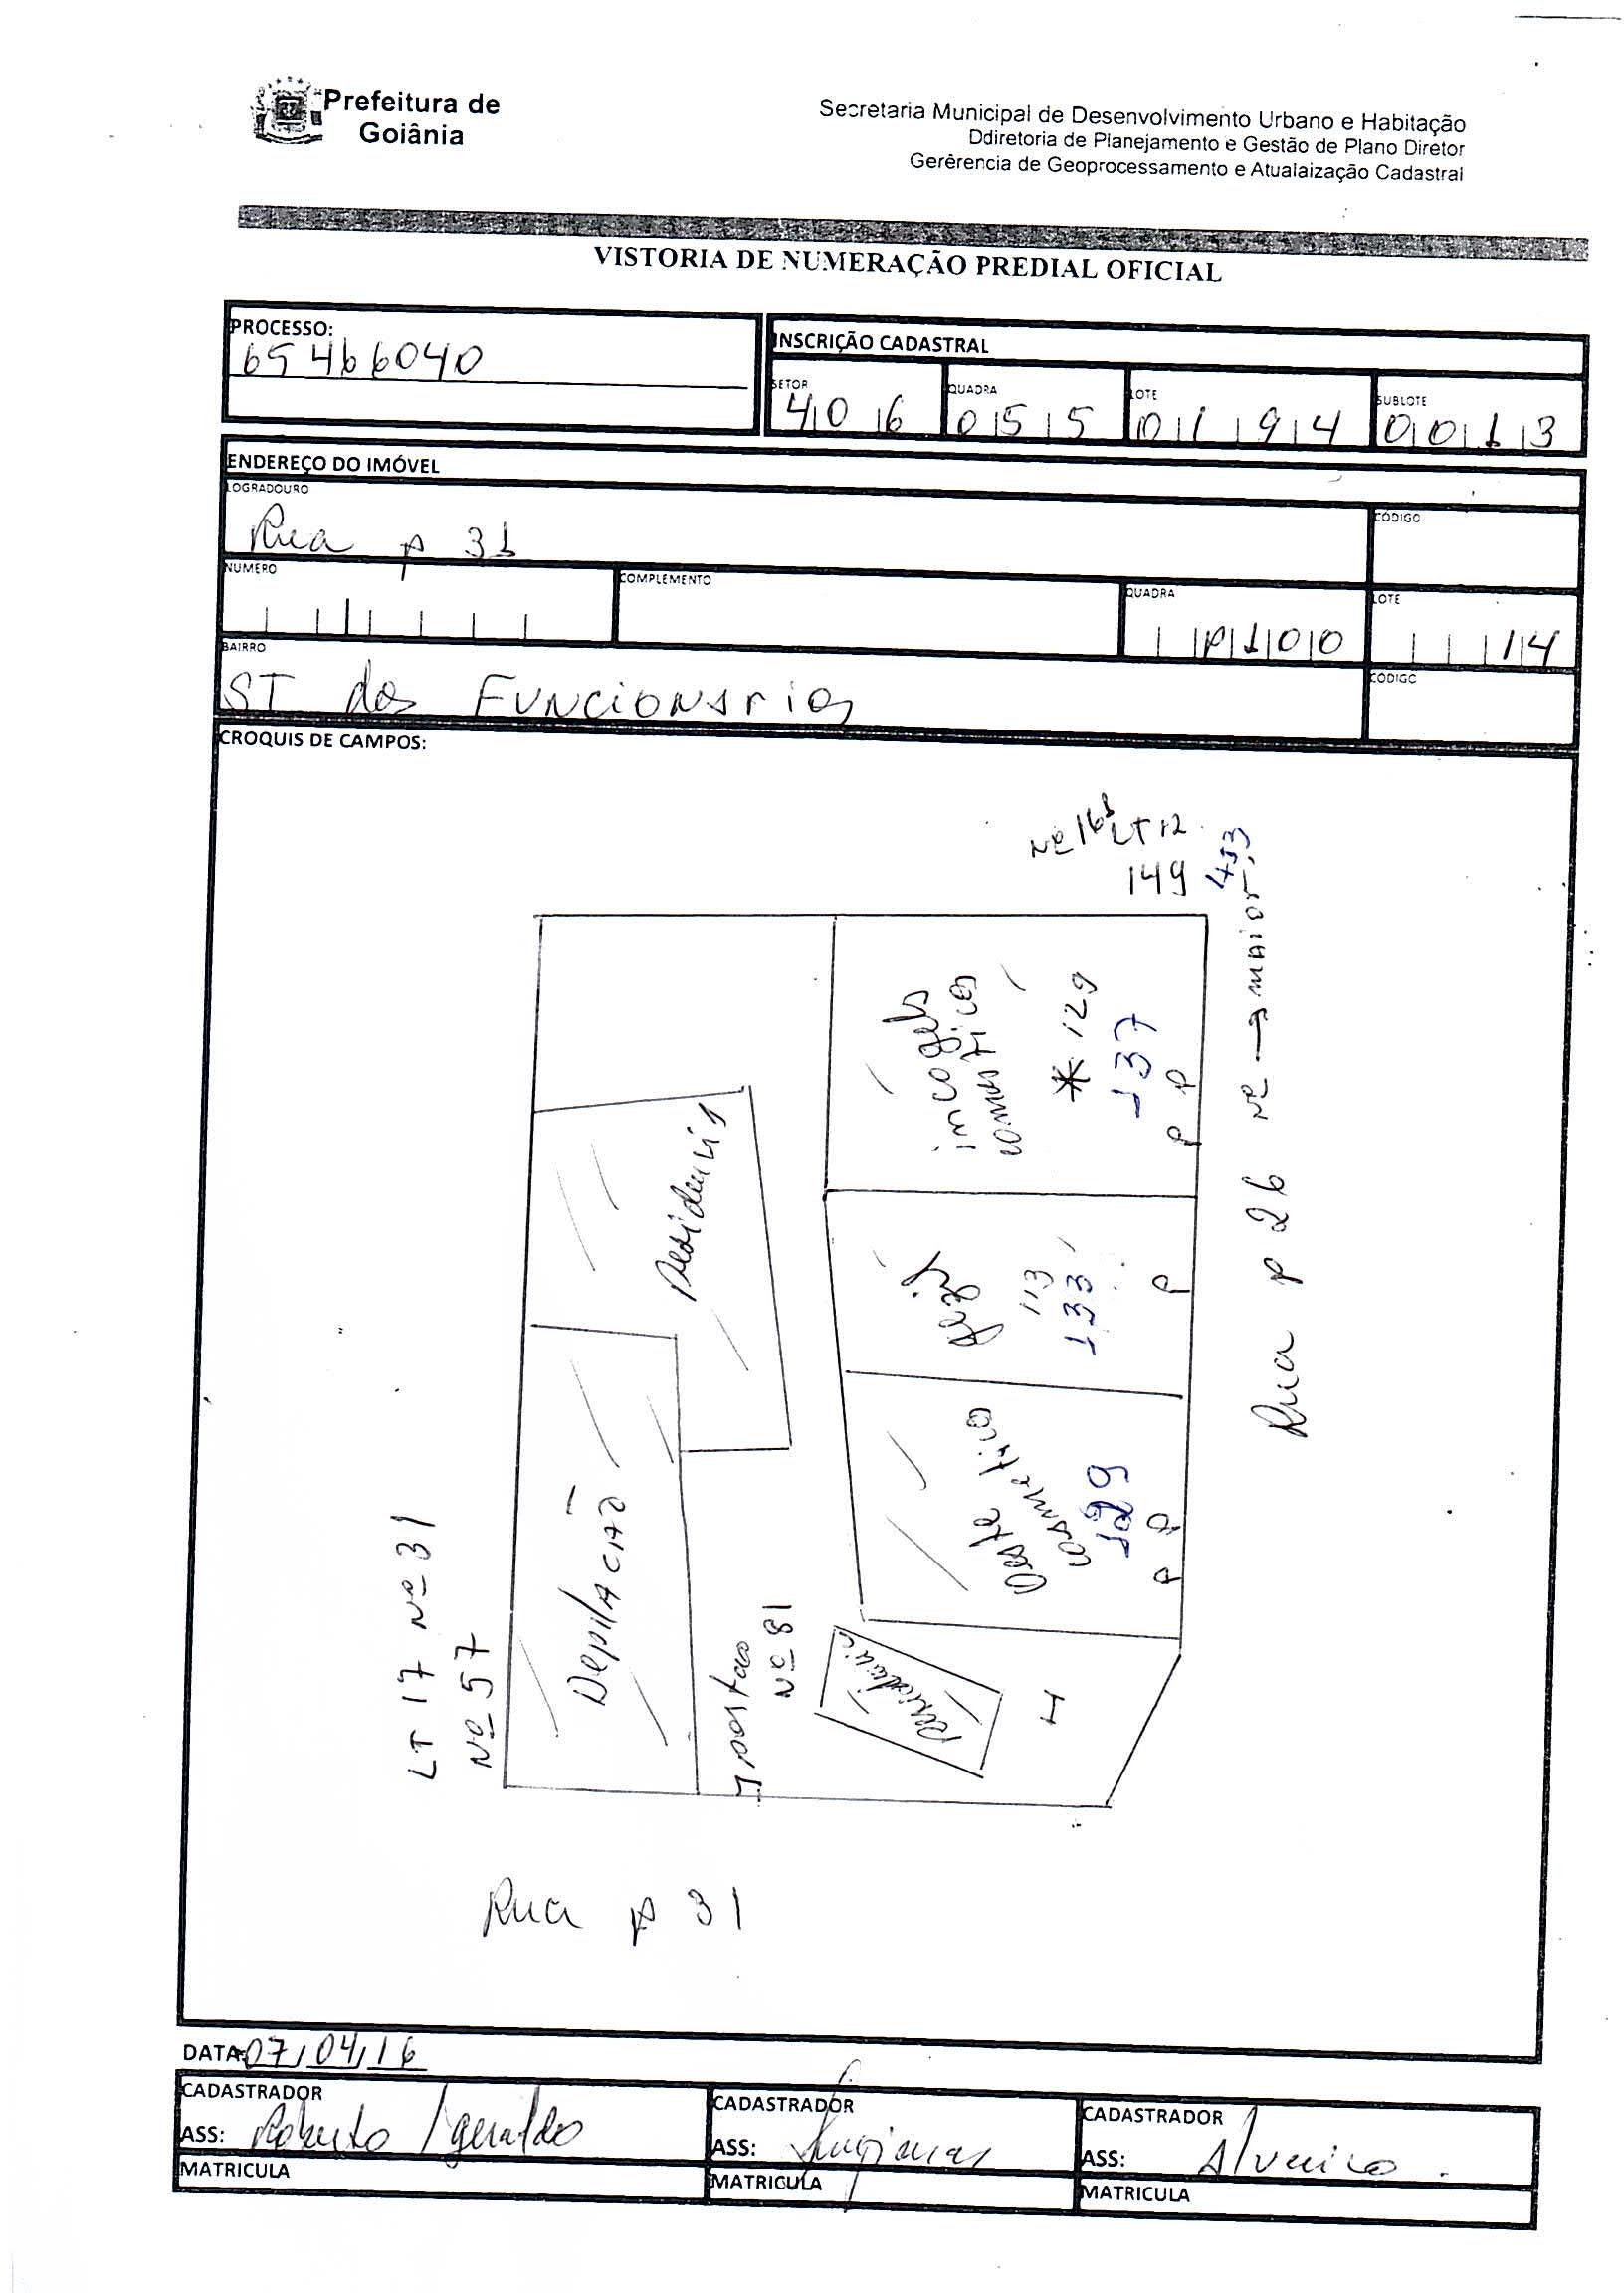 Prefeitura de
Goiânia
Secretaria Municipal de Desenvolvimento Urbano e Habitação
Ddiretoria de Planejamento e Gestão de Plano Diretor
Gerêrencia de Geoprocessamento e Atualaização Cadastral
VISTORIA DE NUMERAÇÃO PREDIAL OFICIAL
PROCESSO:
65466040
INSCRIÇÃO CADASTRAL
SETOR QUADRA LOTE SUBLOTE
406 055 0194 0013
ENDEREÇO DO IMÓVEL
LOGRADOURO CÓDIGO
Rua P 31
NUMERO COMPLEMENTO QUADRA LOTE
P100 14
BAIRRO CÓDIGO
ST dos Funcionarios
CROQUIS DE CAMPOS:
Nº 161 LT 12
149
Nº → maior
cosmeticos
* 129
137
P P
Residencia
113
133
P
Rua P 26
Oeste
cosmetico
129
P P
Depilação
LT 17 Nº 31
Nº 57
portao
Nº 81
Residencia
Rua P 31
DATA: 07/04/16
CADASTRADOR CADASTRADOR CADASTRADOR
ASS: Roberto / geraldo ASS: ASS:
MATRICULA MATRICULA MATRICULA